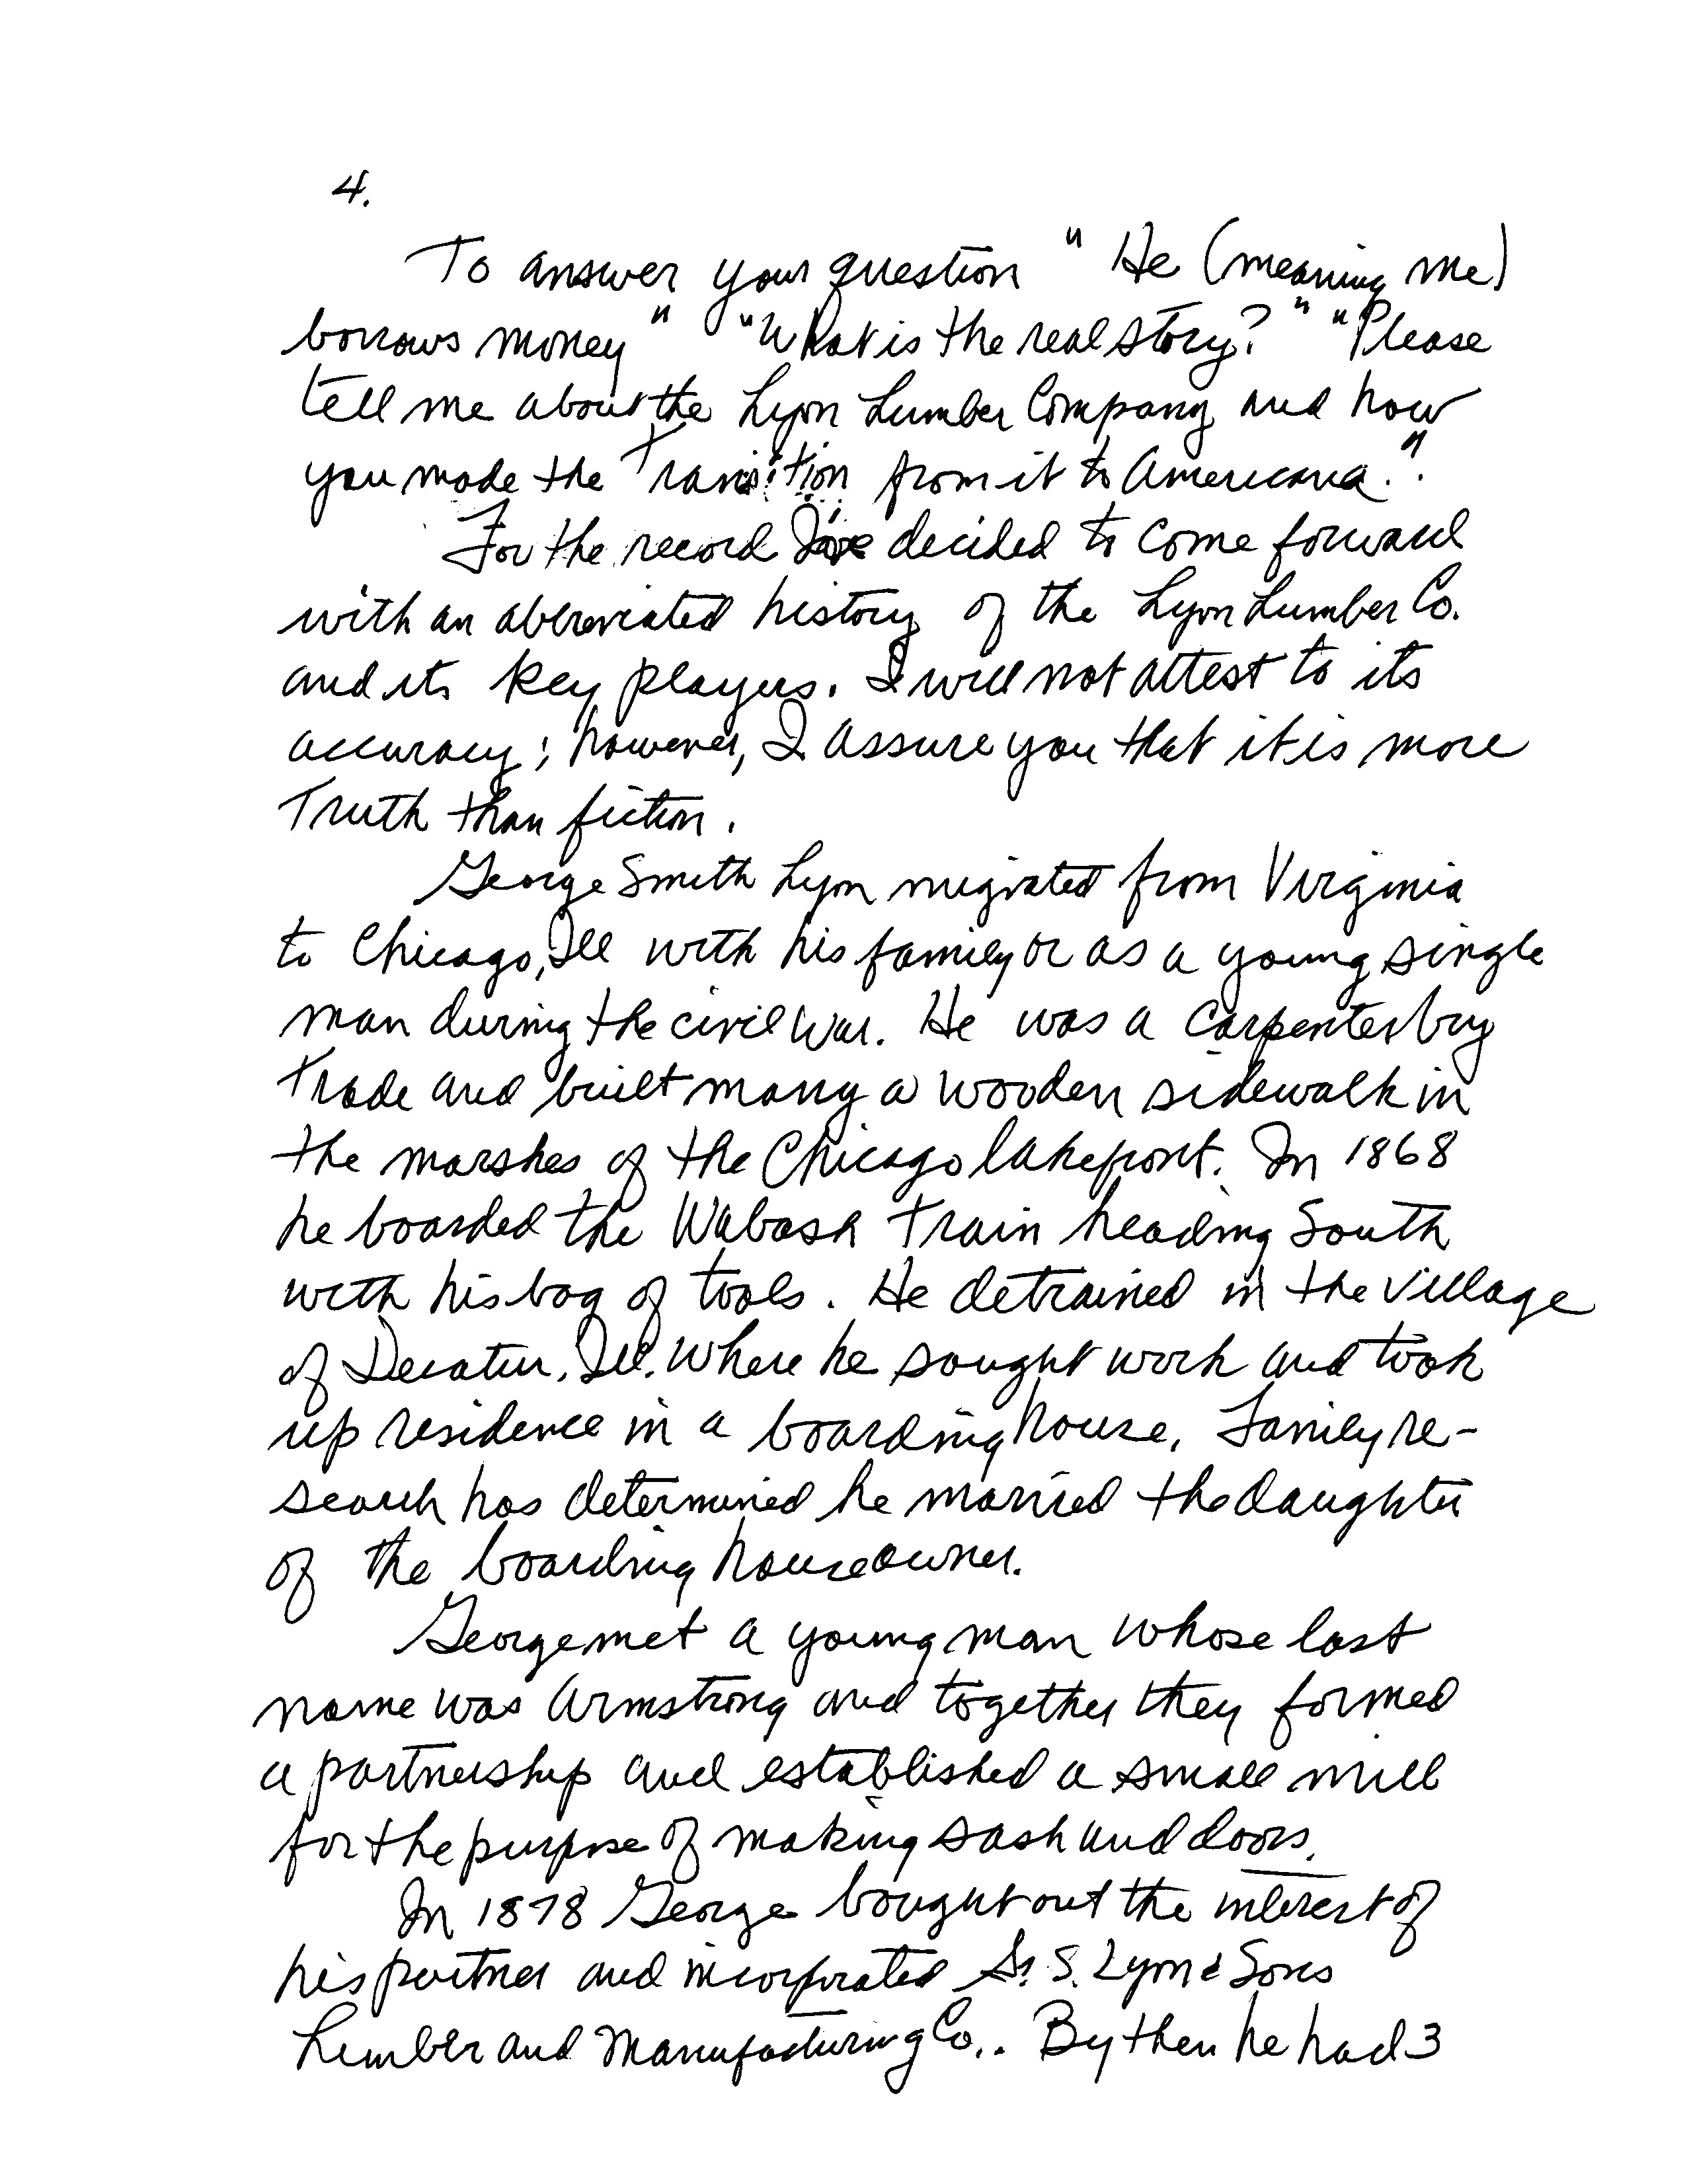 4.
To answer your question "He (meaning me)
borrows money" "What is the real story?" "Please
tell me about the Lyon Lumber Company and how
you made the Transition from it to Americana."
For the record I've decided to come forward
with an abbreviated history of the Lyon Lumber Co.
and its key players. I will not attest to its
accuracy; however, I assure you that it is more
Truth than fiction.
George Smith Lyon migrated from Virginia
to Chicago, Ill with his family or as a young single
man during the civil War. He was a Carpenter by
Trade and built many a wooden sidewalk in
the marshes of the Chicago lakefront. In 1868
he boarded the Wabash Train heading South
with his bag of tools. He detrained in the Village
of Decatur, Ill. where he sought work and took
up residence in a boarding house. Family re-
search has determined he married the daughter
of the boarding house owner.
George met a young man whose last
name was Armstrong and together they formed
a partnership and established a small mill
for the purpose of making sash and doors.
In 1878 George bought out the interest of
his partner and incorporated G. S. Lyon & Sons
Lumber and Manufacturing Co.. By then he had 3